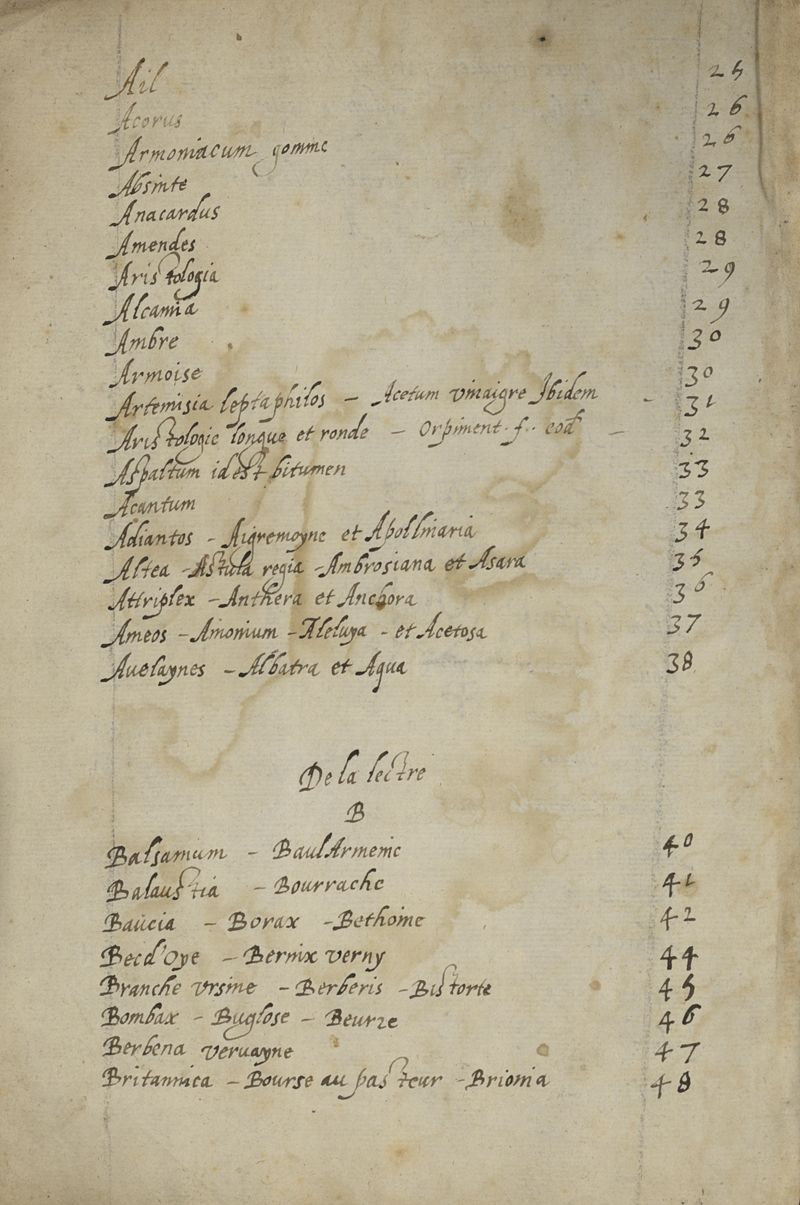 Ail 25
Acorus 26
Armoniacum gomme 26
Absinte 27
Anacardus 28
Amendes 28
Aristologia 29
Alcanna 29
Ambre 30
Armoise 30
Artemisia leptaphilos – Acetum vinaigre Ibidem - 31
Aristologie longue et ronde – Orpiment f. eod – 32
Aspaltum id est bitumen 33
Acantum 33
Adiantos - Aigremoyne et Apollinaria 34
Altea - Astula regia - Ambrosiana et Asara 35
Attriplex - Anthera et Anchora 36
Ameos - Amonium - Aleluya - et Acetosa 37
Auelaynes - Albatra et Aqua 38
De la lectre
B
Balsamum - Baul Armenic 40
Balaustia - Bourrache 41
Baucia - Borax - Bethoine 42
Bec d'Oye - Bernix verny 44
Branche vrsine - Berberis - Bistorte 45
Bombax - Buglose - Beurre 46
Berbena veruayne 47
Britannica - Bourse au pasteur - Brionia 48